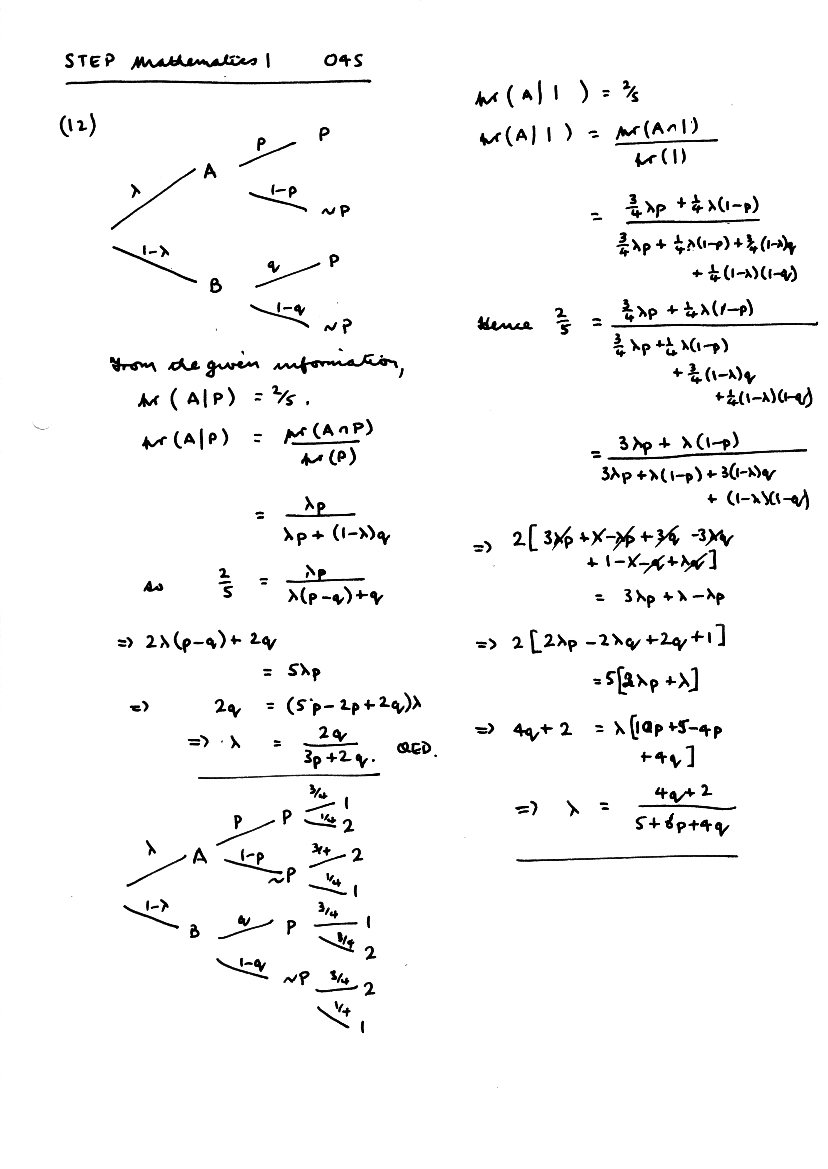 STEP Mathematics 1 045
(12)
λ A p P
1-p ~P
1-λ B q P
1-q ~P
From the given information,
pr (A|P) = 2/5.
pr (A|P) = pr(A∩P) / pr(P)
= λp / λp + (1-λ)q
so 2/5 = λp / λ(p-q)+q
=> 2λ(p-q)+2q
= 5λp
=> 2q = (5p-2p+2q)λ
=> λ = 2q / 3p+2q. QED.
λ A p P 3/4 1
1/4 2
1-p ~P 3/4 2
1/4 1
1-λ B q P 3/4 1
3/4 2
1-q ~P 3/4 2
1/4 1
pr (A|1) = 2/5
pr (A|1) = pr(A∩1) / pr(1)
= 3/4 λp + 1/4 λ(1-p) / 3/4 λp + 1/4 λ(1-p) + 3/4 (1-λ)q
+ 1/4 (1-λ)(1-q)
Hence 2/5 = 3/4 λp + 1/4 λ(1-p) / 3/4 λp + 1/4 λ(1-p)
+ 3/4 (1-λ)q
+ 1/4 (1-λ)(1-q)
= 3λp + λ(1-p) / 3λp + λ(1-p) + 3(1-λ)q
+ (1-λ)(1-q)
=> 2[3λp + λ - λp + 3q - 3λq
+ 1 - λ - q + λq]
= 3λp + λ - λp
=> 2[2λp - 2λq + 2q + 1]
= 5[2λp + λ]
=> 4q + 2 = λ[10p + 5 - 4p
+ 4q]
=> λ = 4q + 2 / 5 + 6p + 4q